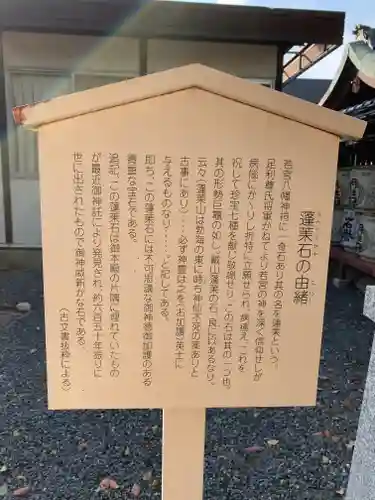 蓬莱石の由緒
若宮八幡神社に一奇石あり其の名を蓬莱という。
足利尊氏将軍かねてより若宮の神を深く信仰せしが
病悩にかゝりし折特に立願せられ、病癒え、これを
祝して珍宝七種を献じ敬賽せり。この石は其の一つ也。
其の形勢巨鼇の如し、戴山蓬莱の石、良に以あるなり。
云々(蓬莱山は勃海の東に峙ち神仙不死の薬ありと
古事にあり)……必ず神霊は之を(名加護)英士に
与えるものなり……と記してある。
即ち、この蓬莱石には不可思議な御神徳御加護のある
貴重な宝石である。
追記、この蓬莱石は御本殿の片隅に埋れていたもの
が最近御神託により発見され、約六百五十年振りに
世に出されたもので御神威新かな石である。
(古文書抜粋による)